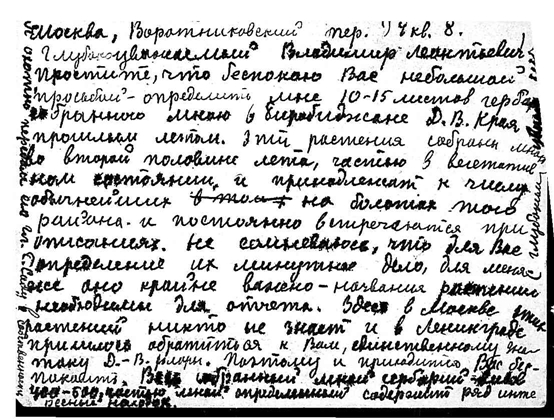 Москва, Воротниковский пер. 7/9 кв. 8.
Глубокоуважаемый Владимир Леонтьевич,
простите, что беспокою Вас небольшой
просьбой - определить мне 10-15 листов герба-
собранного мною в Биробиджане Д.В. Края
прошлым летом. Эти растения собраны мною
во второй половине лета, частью в вегетатив-
ном состоянии и принадлежат к числу
обычнейших на болотах того
района и постоянно встречаются при
описаниях. Не сомневаюсь, что для Вас
определение их минутное дело, для меня
же оно крайне важно - названия растений
необходимы для отчета. Здесь в Москве этих
растений никто не знает и в Ленинграде
пришлось обратиться к Вам, единственному зна-
току Д.-В. флоры. Поэтому и приходится Вас бес-
покоить. Весь собранный мной гербарий
400-500, частью мной определенный содержит ряд инте-
ресных находок.
Я охотно передал его